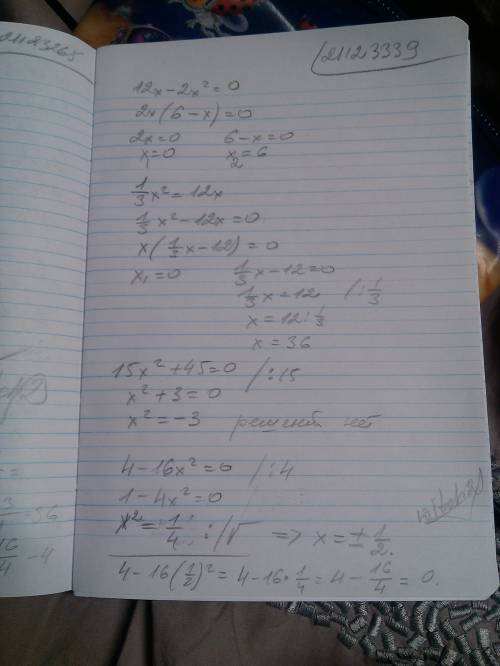 21123265
21123339
12x-2x²=0
2x(6-x)=0
2x=0 6-x=0
x₁=0 x₂=6
1/3 x²=12x
1/3 x²-12x=0
x(1/3 x-12)=0
x₁=0 1/3 x-12=0
1/3 x=12 /:1/3
x=12:1/3
x=36
15x²+45=0 /:15
x²+3=0
x²=-3 решений нет
4-16x²=0 /:4
1-4x²=0
x²=1/4; /√ => x=±1/2.
4-16(1/2)²=4-16·1/4=4-16/4=0.